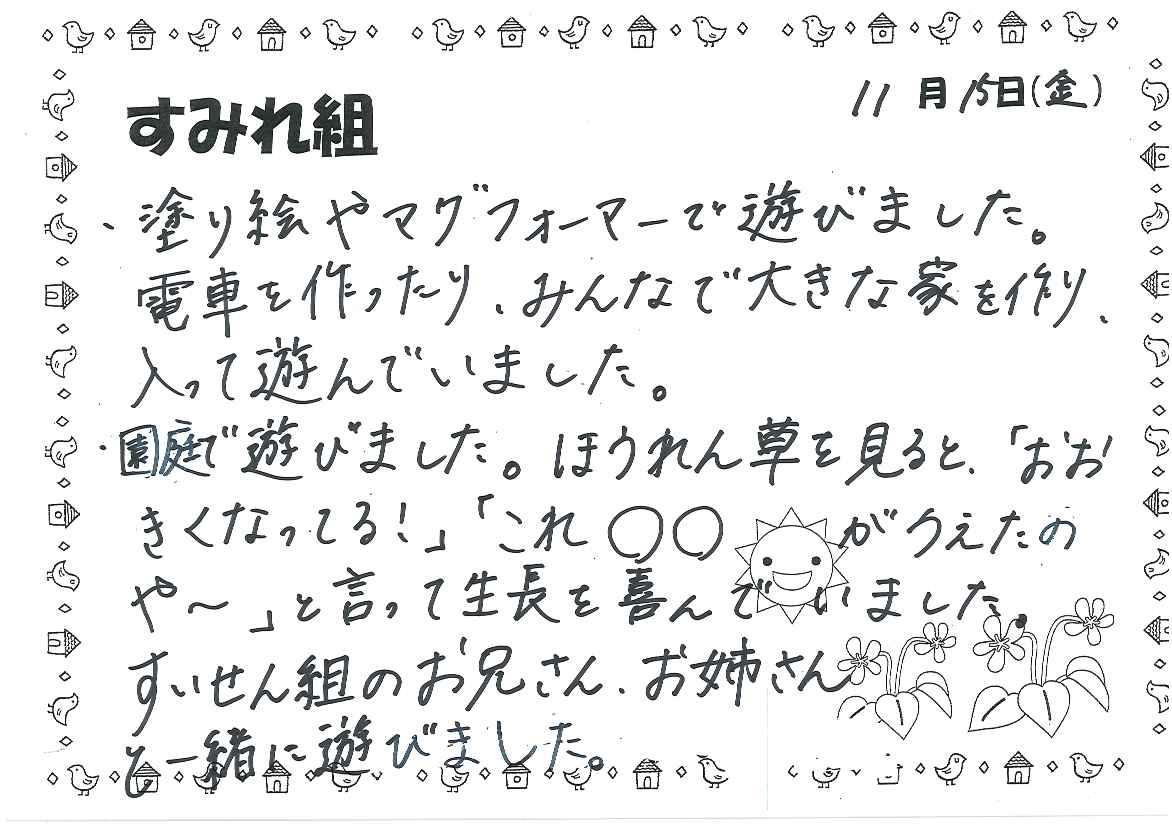 すみれ組
11月15日(金)
・塗り絵やマグフォーマーで遊びました。
電車を作ったり、みんなで大きな家を作り、
入って遊んでいました。
・園庭で遊びました。ほうれん草を見ると、「おお
きくなってる!」「これ〇〇がうえたの
や～」と言って生長を喜んでいました。
すいせん組のお兄さん、お姉さん
と一緒に遊びました。